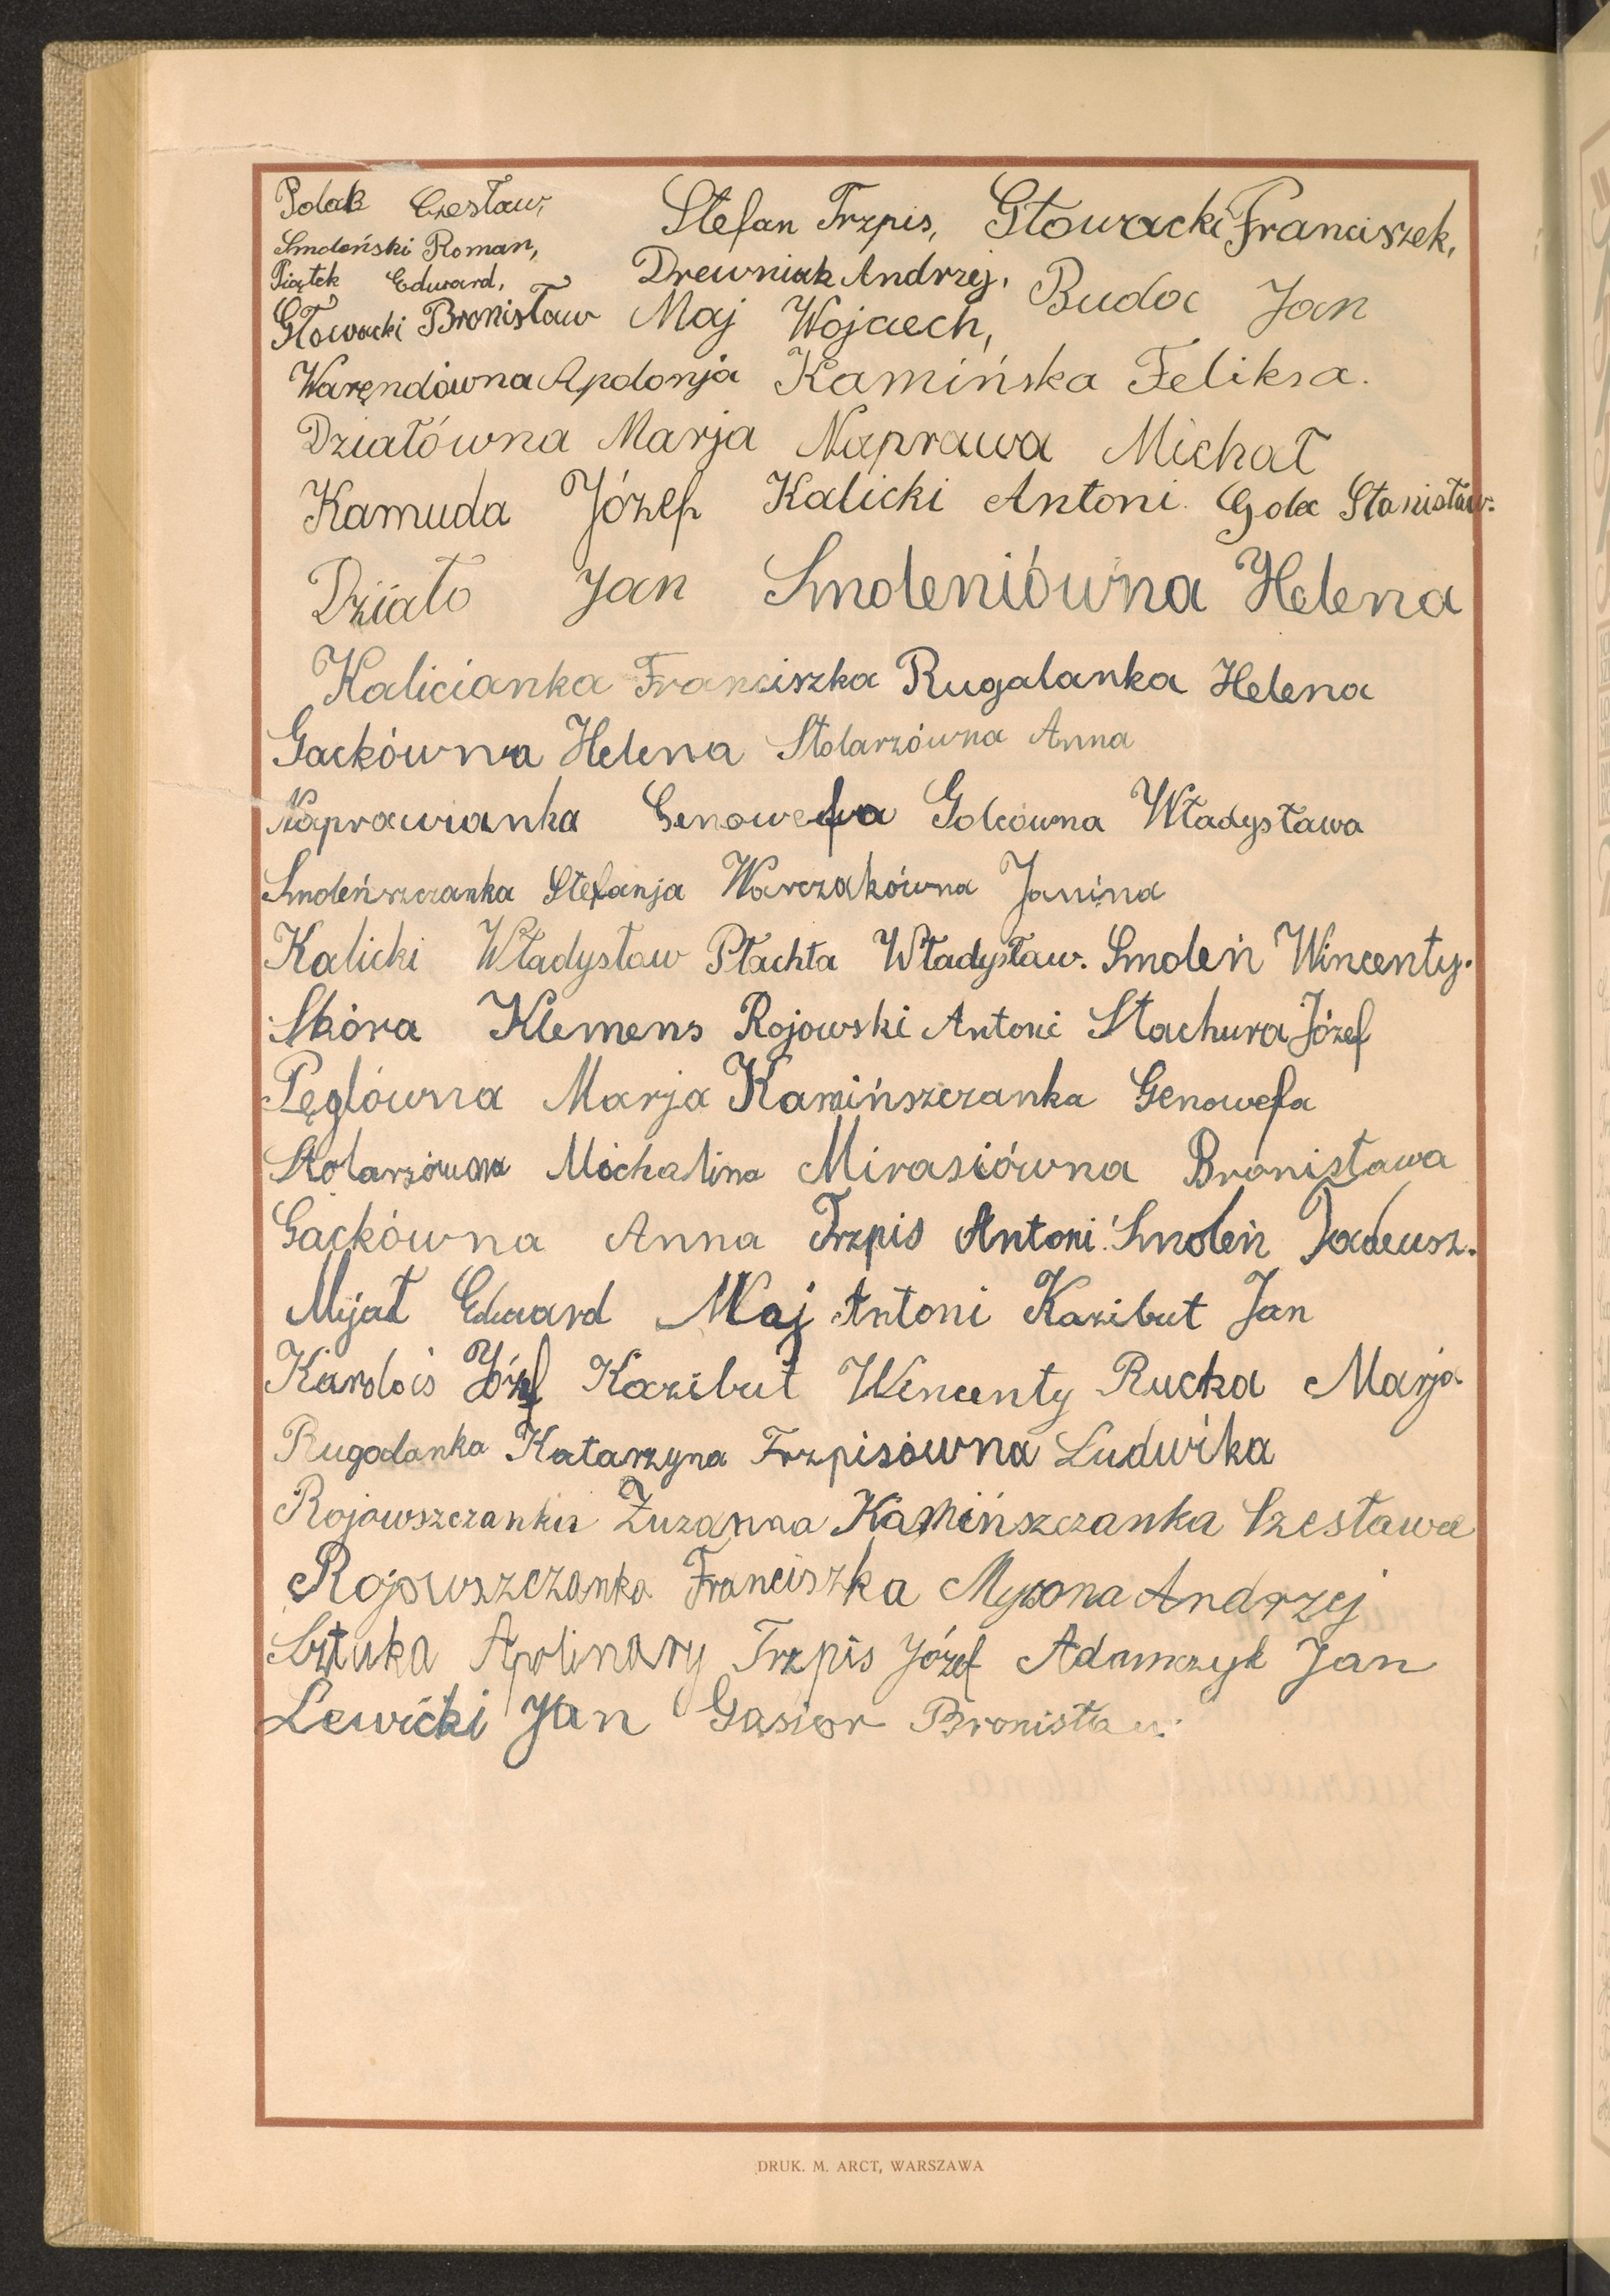 Polak Czesław, Stefan Trzpis, Głowacki Franciszek,
Smoleński Roman,
Piątek Edward, Drewniak Andrzej,
Głowacki Bronisław Maj Wojciech, Buda Jan
Warendówna Apolonja Kamińska Feliksa.
Działówna Marja Naprawa Michał
Kamuda Józef Kalicki Antoni. Gola Stanisław.
Działo Jan Smoleniówna Helena
Kalicianka Franciszka Rugalanka Helena
Gackówna Helena Stolarzówna Anna
Naprawianka Genowefa Golcówna Władysława
Smoleńszczanka Stefanja Warczakówna Janina
Kalicki Władysław Płachta Władysław. Smoleń Wincenty.
Skóra Klemens Rojowski Antoni Stachura Józef
Pęglówna Marja Kamińszczanka Genowefa
Stolarzówna Michalina Mirasiówna Bronisława
Gackówna Anna Trzpis Antoni. Smoleń Tadeusz.
Myjał Edward Maj Antoni Kazibut Jan
Józef Kazibut Wincenty Rucka Marja
Rugalanka Katarzyna Trzpisówna Ludwika
Rojowszczanka Zuzanna Kamińszczanka Czesława
Rojowszczanka Franciszka Andrzej
Sztuka Apolinary Trzpis Józef Adamczyk Jan
Lewicki Jan Gasior Bronisław.
DRUK. M. ARCT, WARSZAWA